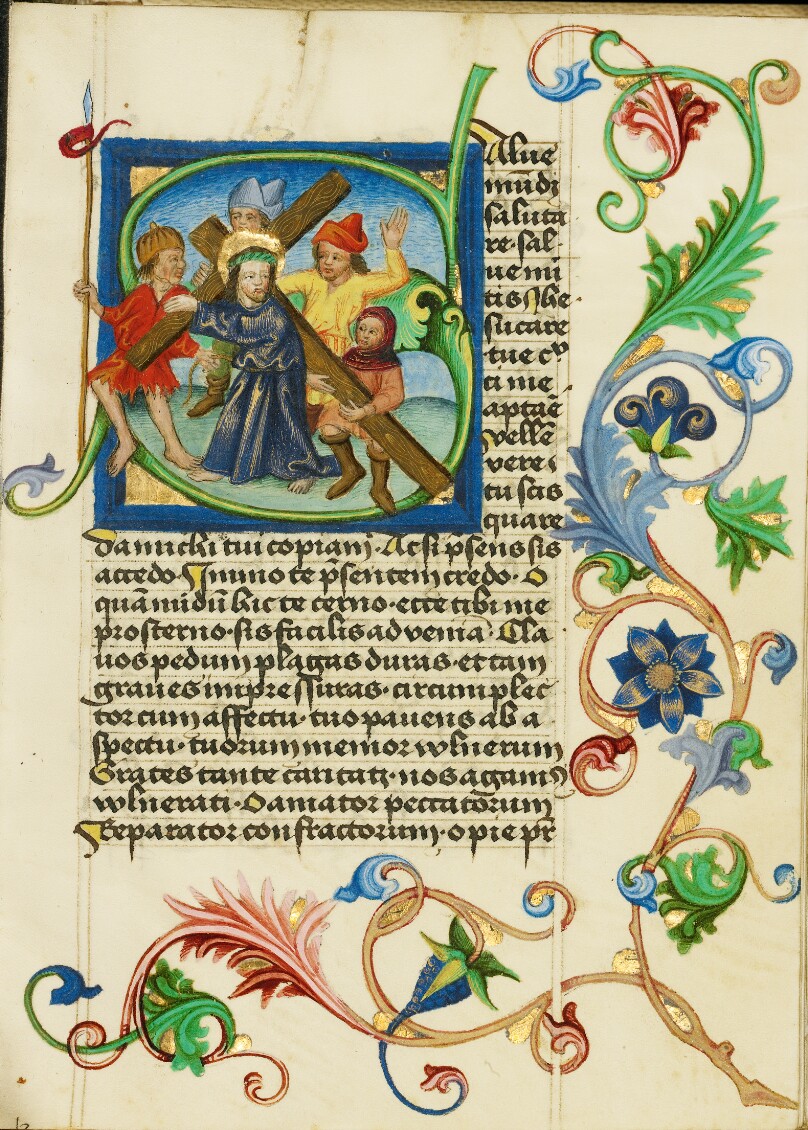 Alue
mūdi
saluta
re·sal-
ue mi
tis Ihe
su care
tue cͬv
ci me
aptaē
vellē
vere i
tu scis
quare
da michi tui copiam· Acsi p̄sens sis
accedo· Immo te p̄sentem credo· O
quā nudū hic te cerno· ecce tibi me
prosterno· sis facilis ad venia· Cla
uos pedum plagas duras· et tam
graues impressuras· circumplec
tor cum affectu· tuo pauens ab a
spectu· tuorum memor vvlnerum
Grates tante caritatꝫ· nos agamꝰ
vvlnerati· O amator peccatorum
Reparator confractorum· o pie pr̄